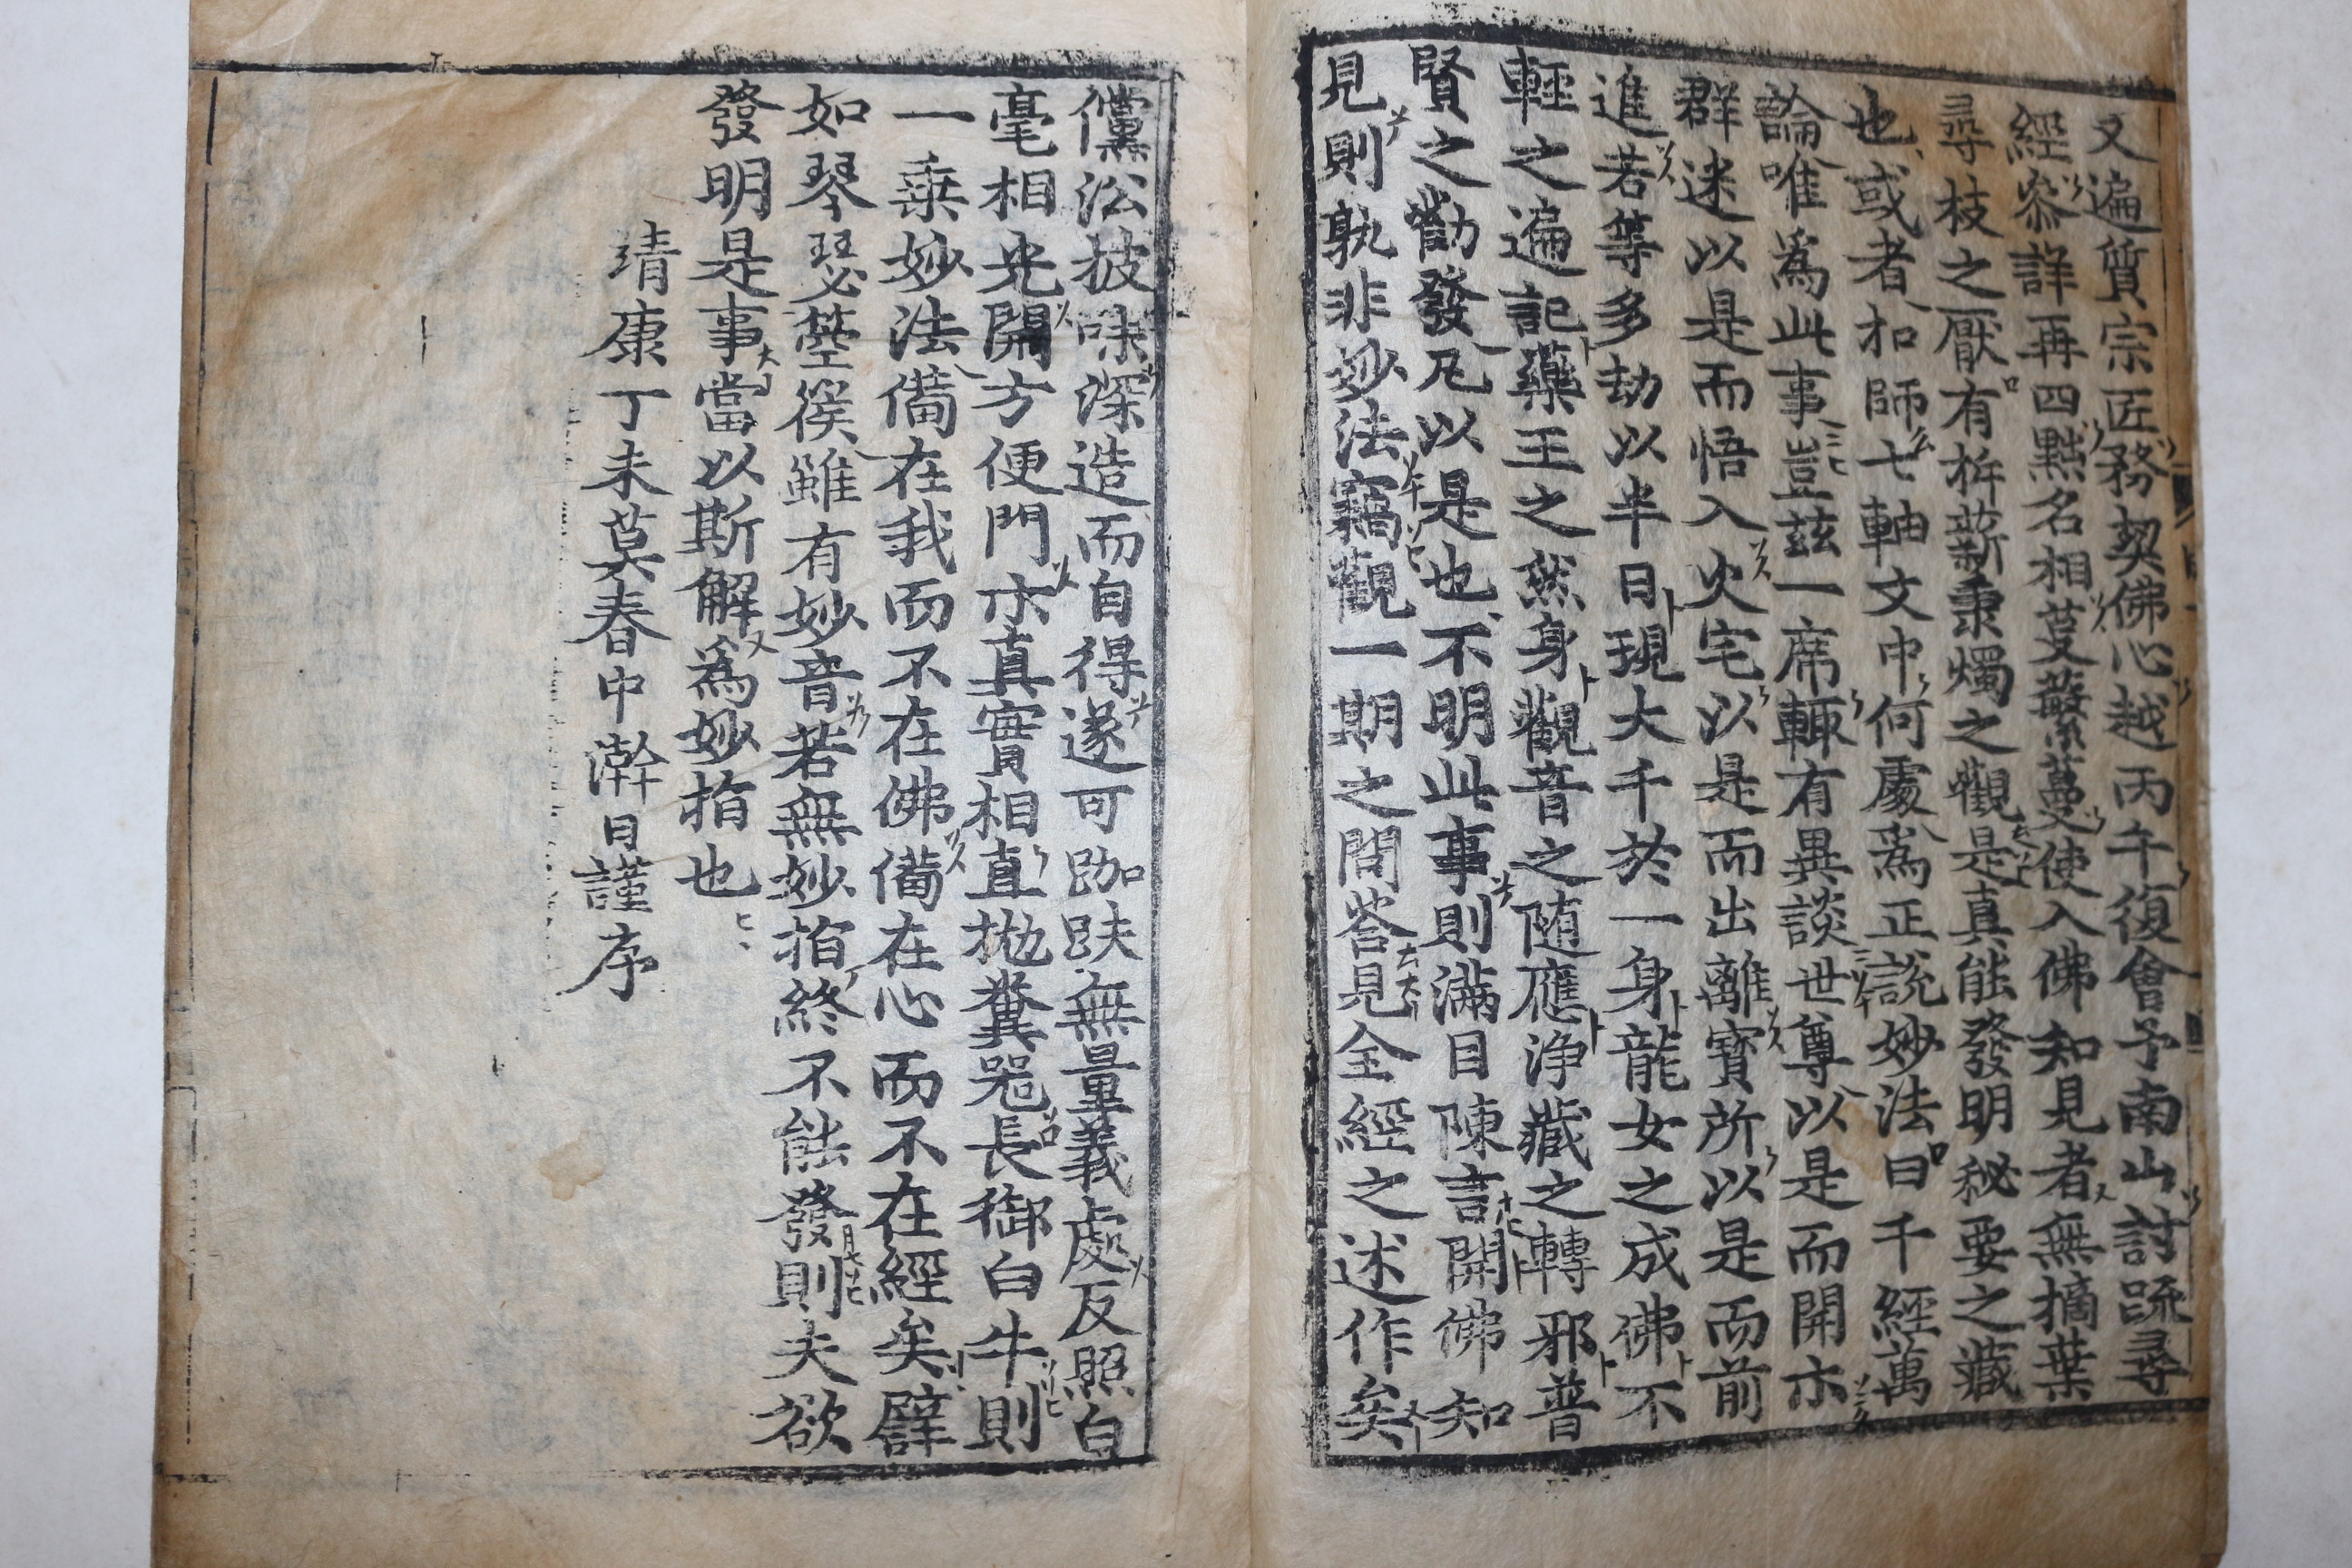 又遍質宗匠務契佛心越丙午復會予南山討䟽尋
經叅詳再四黜名相芟蘩蔓使入佛知見者無摘葉
尋枝之厭有析薪秉燭之觀是真能發明秘要之藏
也或者扣師七軸文中何處爲正說妙法曰千經萬
論唯爲此事豈玆一席輙有異談世尊以是而開示
群迷以是而悟入火宅以是而出離寶所以是而前
進若等多劫以半日現大千於一身龍女之成佛不
輕之遍記藥王之然身觀音之随應浄藏之轉邪普
賢之勸發凡以是也不明此事則滿目陳言開佛知
見則孰非妙法竊觀一期之問荅見全經之述作矣
儻㳂披味深造而自得遂可跏趺無量義處反照白
毫相光開方便門示真實相直拋糞器長御白牛則
一乗妙法備在我而不在佛備在心而不在經矣譬
如琴瑟箜篌雖有妙音若無妙指終不能發則夫欲
發明是事當以斯解爲妙指也
靖康丁未莫春中澣日謹序